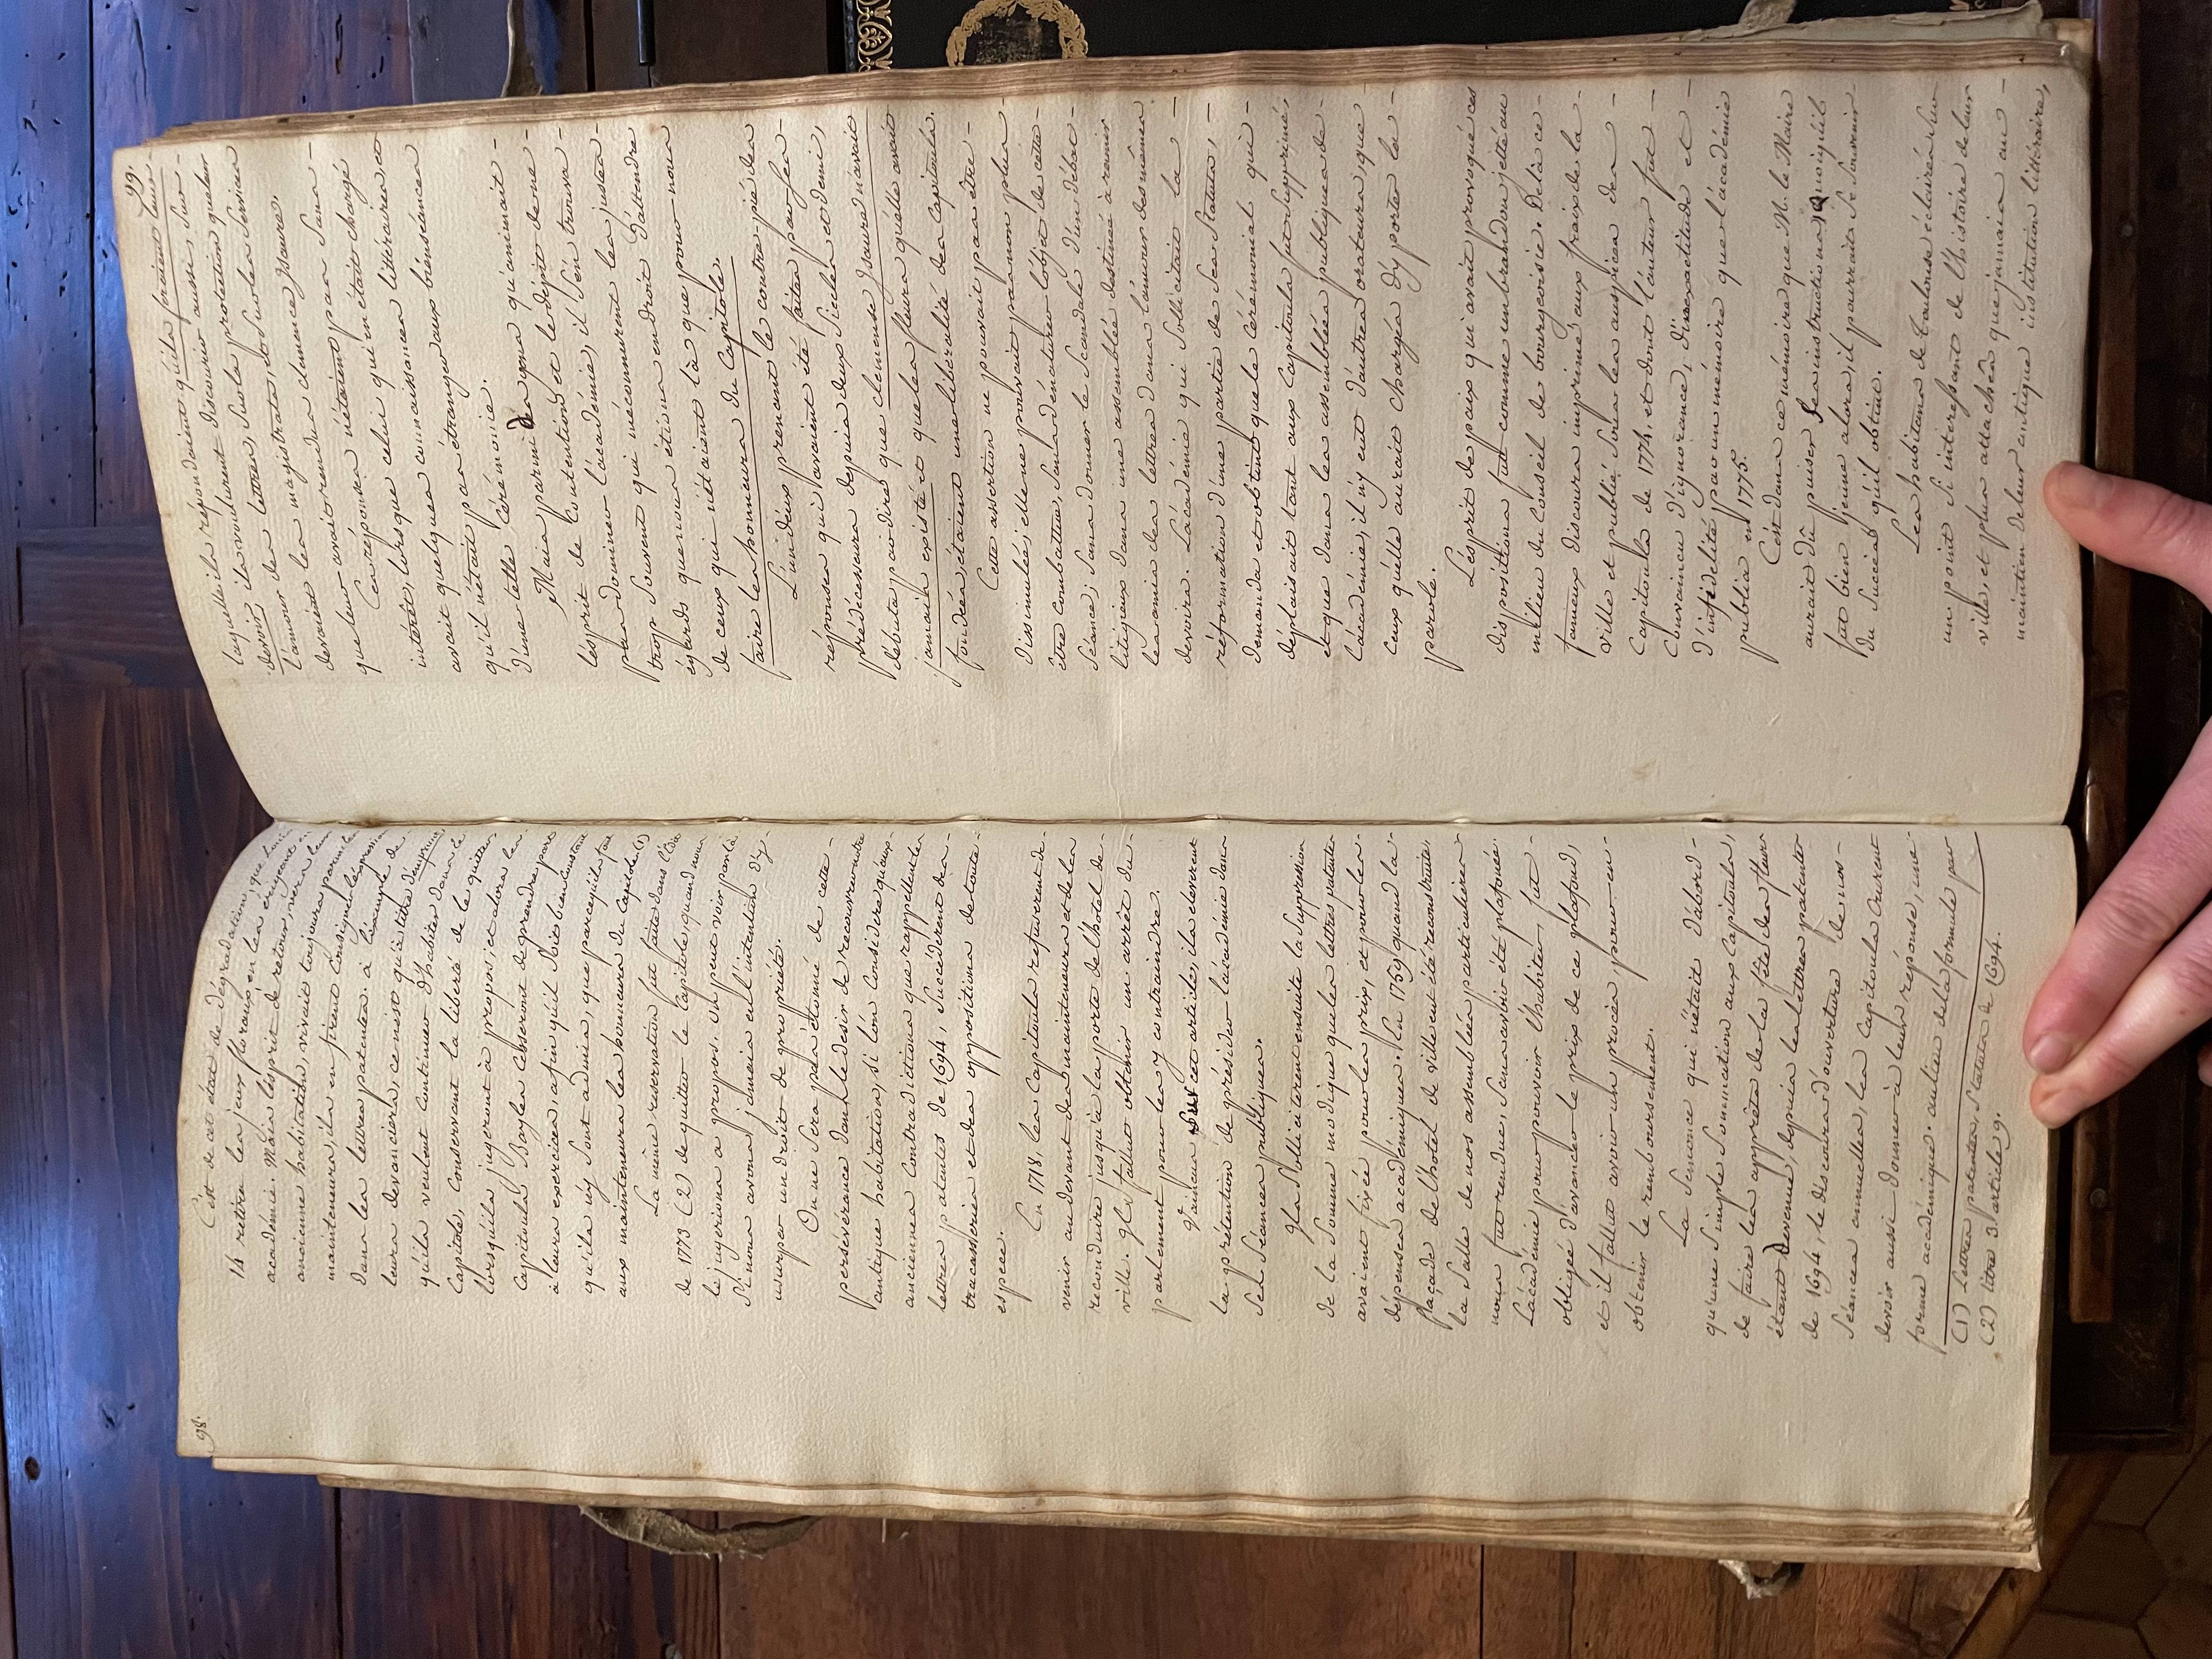 98.
C'est de cet état de dégradation, que Louis
14 retira les jeux floraux, en les érigeant en
académie. Mais l'esprit de retour, vers leur
ancienne habitation, vivait toujours parmi les
mainteneurs, ils en firent consigner l'expression
dans les lettres patentes. à l'exemple de
leurs devanciers, ce n'est qu'à titre d'emprunt
qu'ils veulent continuer d'habiter dans le
Capitole, conservant la liberté de le quitter
lorsqu'ils jugeront à propos; et alors les
Capitouls Bayles cesseront de prendre part
à leurs exercices, afin qu'il soit bien constaté
qu'ils n'y sont admis, que parcequ'ils font
aux mainteneurs les honneurs du Capitole. (1)
La même réservation fut faite dans l'Edit
de 1773 (2) de quitter le Capitole, quand nous
le jugerions à propos. on peut voir par là
si nous avons jamais eu l'intention d'y
usurper un droit de propriété.
On ne sera pas étonné de cette
persévérance dans le desir de recouvrer notre
antique habitation, si l'on considère qu'aux
anciennes contradictions que rappellent les
lettres patentes de 1694, succédèrent des
tracasseries et des oppositions de toute
espece.
En 1718, les Capitouls refuserent de
venir au devant des mainteneurs et de les
reconduire jusqu'à la porte de l'hotel de
ville. Il fallut obtenir un arrêt du
parlement pour les y contraindre.
Vaincus sur cet article, ils eleverent
la prétention de présider l'académie dans
ses séances publiques.
Ils solliciterent ensuite la suppression
de la somme modique que les lettres patentes
avaient fixée pour les prix, et pour les
dépenses académiques. En 1759 quand la
façade de l'hotel de ville eut été reconstruite,
la salle de nos assemblées particulieres
nous fut rendue, sans avoir été plafonée.
L'académie pour pouvoir l'habiter, fut
obligée d'avancer le prix de ce plafond,
et il fallut avoir un procès, pour en
obtenir le remboursement.
La Semonce qui n'était d'abord
qu'une simple sommation aux Capitouls,
de faire les apprêts de la fête des fleurs
étant devenue, depuis les lettres patentes
de 1694, le discours d'ouverture de nos
séances annuelles, les Capitouls crurent
devoir aussi donner à leur réponse, une
forme académique. au lieu de la formule par
(1) Lettres patentes, Statuts de 1694.
(2) titre 3 article 9.
99.
laquelle ils répondaient qu'ils feraient leur
devoir ils voulurent discourir aussi, sur
l'amour des lettres, sur la protection que leur
devaient les magistrats, et sur les services
que leur avait rendus clémence Isaure.
Ces réponses n'étaient pas sans
intérêt, lorsque celui qui en était chargé
avait quelques connaissances littéraires et
qu'il n'était pas étranger aux bienséances
d'une telle cérémonie.
Mais parmi des gens qu'animait
l'esprit de contention et le dépit de ne
pas dominer l'académie, il s'en trouva
trop souvent qui méconnurent les justes
égards que nous étions en droit d'attendre
de ceux qui n'étaient là que pour nous
faire les honneurs du Capitole.
L'un d'eux prenant le contre-pié des
réponses qui avaient été faites par ses
prédécesseurs depuis deux siècles et demi,
débuta par dire que, clémence Isaure n'avait
jamais existé et que les fleurs qu'elle avait
fondées, étaient une libéralité des Capitouls.
Cette assertion ne pouvait pas être
dissimulée; elle ne pouvait pas non plus
être combattue, sans dénaturer l'objet de cette
séance; sans donner le scandale d'un débat
litigieux dans une assemblée destinée à réunir
les amis des lettres dans l'amour des mêmes
devoirs. L'académie qui sollicitait la
réformation d'une partie de ses Statuts,
demanda et obtint que le cérémonial qui
déplaisait tant aux Capitouls fut supprimé,
et que dans les assemblées publiques de
l'académie, il n'y eut d'autres orateurs, que
ceux qu'elle aurait chargés d'y porter la
parole.
L'esprit de paix qui avait provoqué ces
dispositions fut comme un brandon jetté au
milieu du Conseil de bourgeoisie. De là ce
fameux discours imprimé aux frais de la
ville et publié sous les auspices des
Capitouls de 1774, et dont l'auteur fut
convaincu d'ignorance, d'inexactitude et
d'infidélité par un mémoire que l'académie
publia en 1775.
C'est dans ce mémoire que M. le Maire
aurait dû puiser ses instructions; quoiqu'il
fut bien jeune alors, il pourrait se souvenir
du succès qu'il obtint.
Les habitans de Toulouse éclairés sur
un point si interessant de l'histoire de leur
ville, et plus attachés que jamais au
maintien de leur antique institution littéraire,